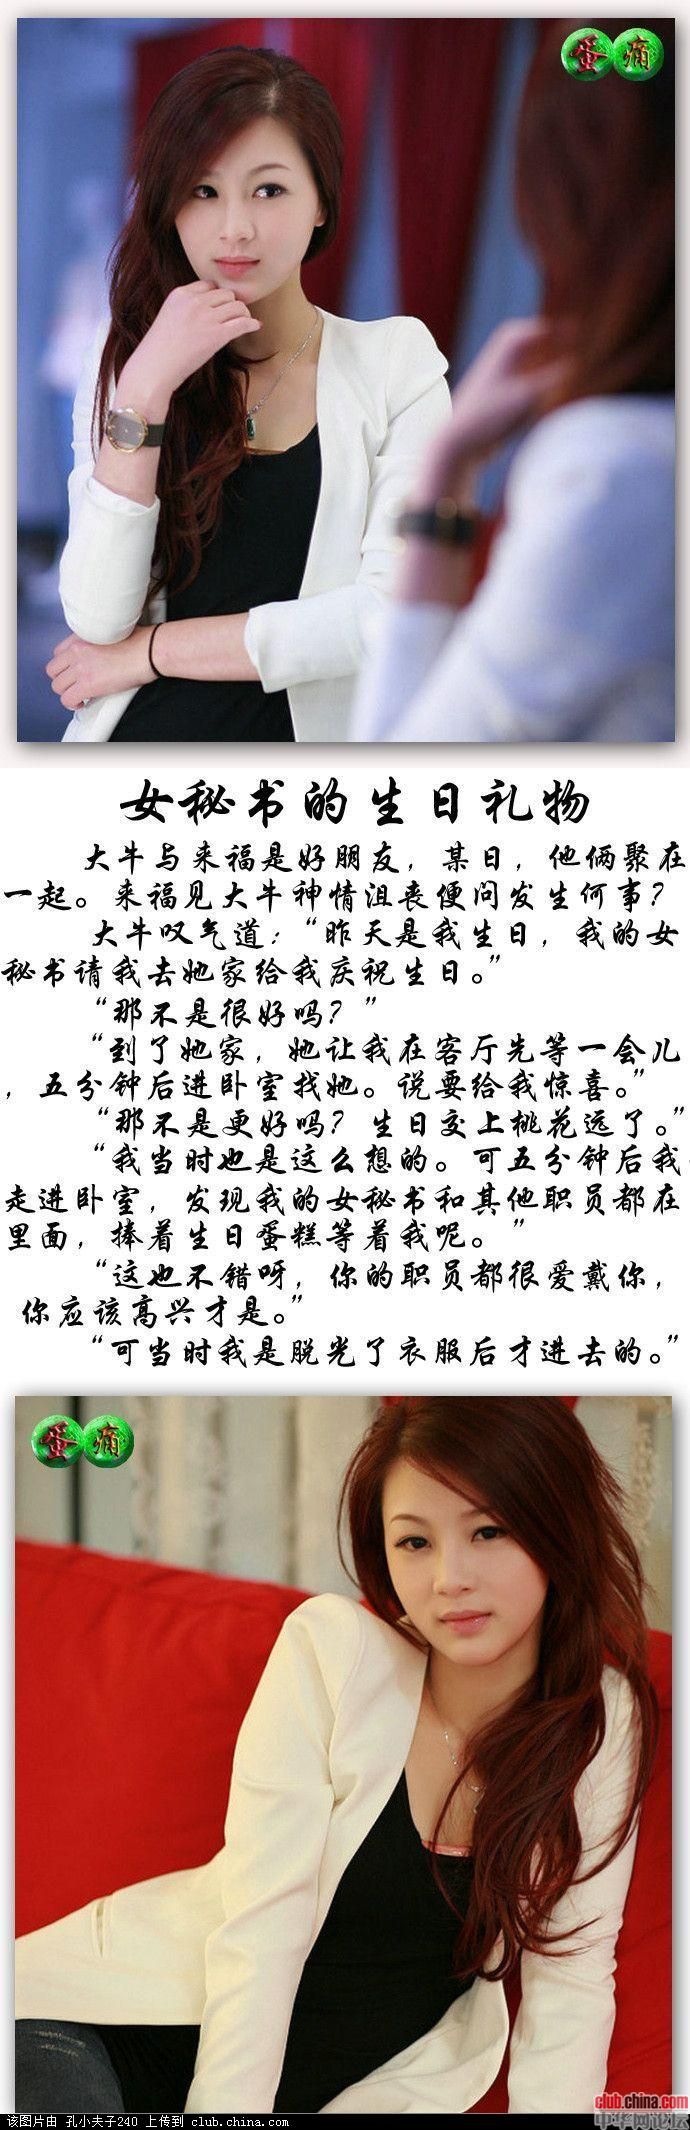 蛋痛
女秘书的生日礼物
大牛与来福是好朋友，某日，他俩聚在
一起。来福见大牛神情沮丧便问发生何事？
大牛叹气道：“昨天是我生日，我的女
秘书请我去她家给我庆祝生日。”
“那不是很好吗？”
“到了她家，她让我在客厅先等一会儿
，五分钟后进卧室找她。说要给我惊喜。”
“那不是更好吗？生日交上桃花运了。”
“我当时也是这么想的。可五分钟后我
走进卧室，发现我的女秘书和其他职员都在
里面，捧着生日蛋糕等着我呢。”
“这也不错呀，你的职员都很爱戴你，
你应该高兴才是。”
“可当时我是脱光了衣服后才进去的。”
蛋痛
club.china.com
中华网论坛
该图片由 孔小夫子240 上传到 club.china.com